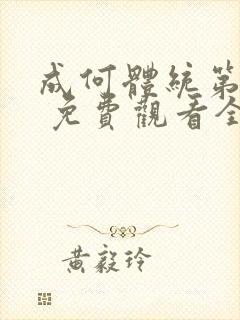 成何體統第
免費觀看全
黃毅玲